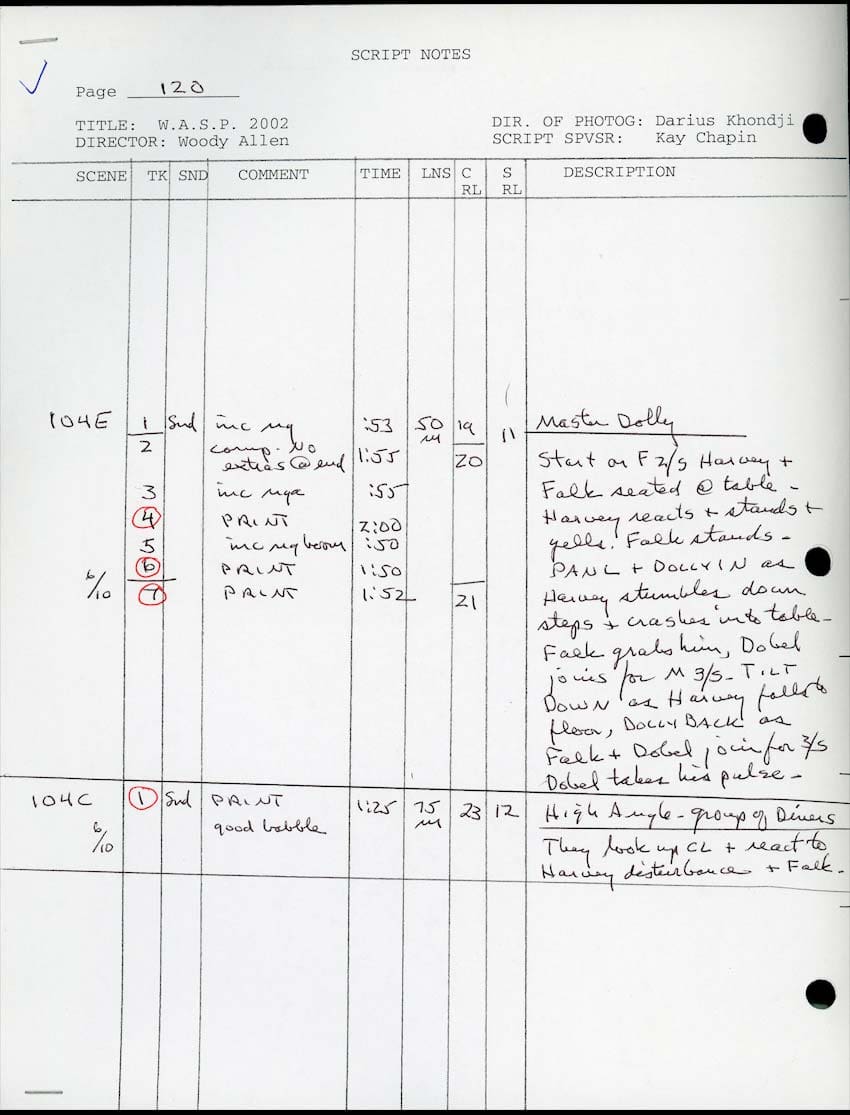 SCRIPT NOTES
Page 120
TITLE: W.A.S.P. 2002
DIRECTOR: Woody Allen
DIR. OF PHOTOG: Darius Khondji
SCRIPT SPVSR: Kay Chapin
SCENE TK SND COMMENT TIME LNS C RL S RL DESCRIPTION
104E 1 Snd inc ng :53 50 m 19 11 Master Dolly
2 comp. No extras @ end 1:55 20
3 inc :55
4 PRINT 2:00
5 inc ng boom :50
6 PRINT 1:50
6/10 7 PRINT 1:52 21
Start on F 2/s Harvey +
Falk seated @ table -
Harvey reacts + stands +
yells. Falk stands -
PAN L + DOLLY IN as
Harvey stumbles down
steps + crashes into table -
Falk grabs him, Dobel
joins for M 3/s - TILT
DOWN as Harvey falls to
floor, DOLLY BACK as
Falk + Dobel join for 3/s
Dobel takes his pulse -
104C 1 Snd PRINT 1:25 75 m 23 12 High Angle - group of Diners
6/10 good babble
They look up CL + react to
Harvey disturbance + Falk.